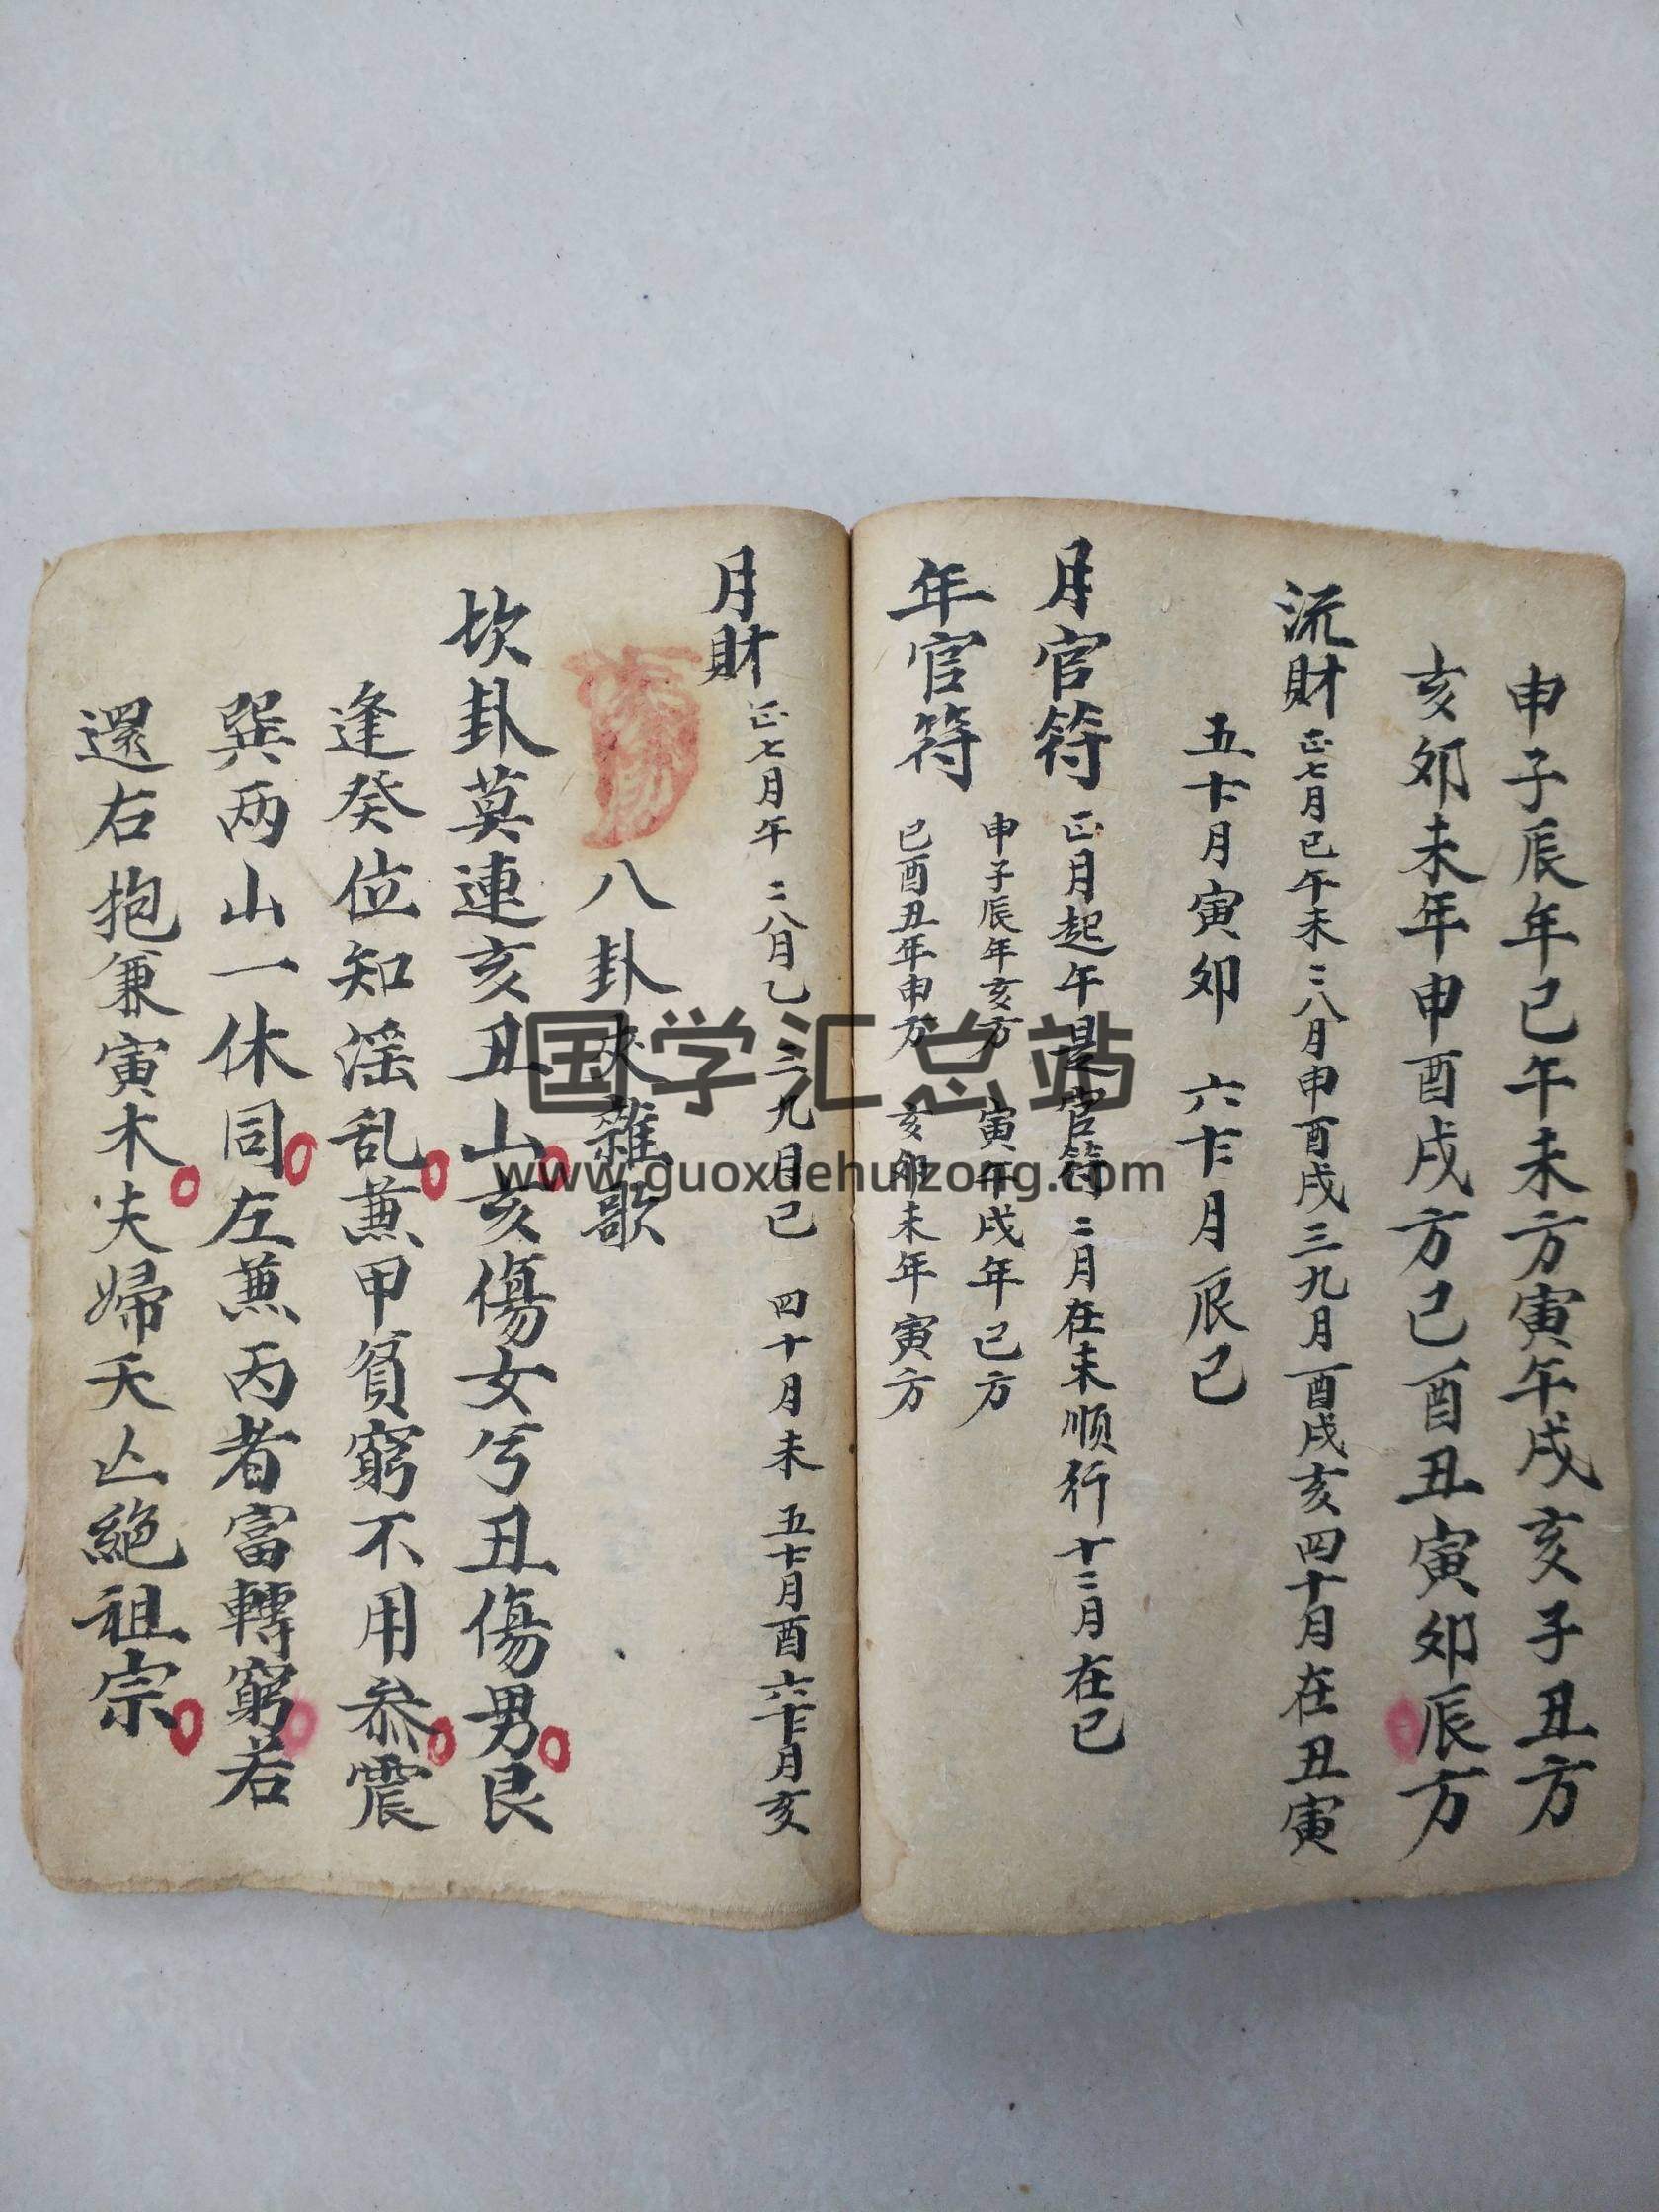 申子辰年巳午未方寅午戌亥子丑方
亥卯未年申酉戌方巳酉丑寅卯辰方
流財 正七月巳午未 二八月申酉戌 三九月酉戌亥 四十月在丑寅
五十一月寅卯 六十二月辰巳
月官符 正月起午是官符 二月在未順行 十二月在巳
年官符 申子辰年亥方 寅午戌年巳方
巳酉丑年申方 亥卯未年寅方
月財 正七月午 二八月乙 三九月巳 四十月未 五十一月酉 六十二月亥
八卦水雜歌
坎卦莫連亥丑山亥傷女兮丑傷男艮
逢癸位知滛乱兼甲貧窮不用叅震
巽両山一休同左兼丙者富轉窮若
還右抱兼寅木夫婦夭亾絕祖宗
国学汇总站
www.guoxuehuizong.com